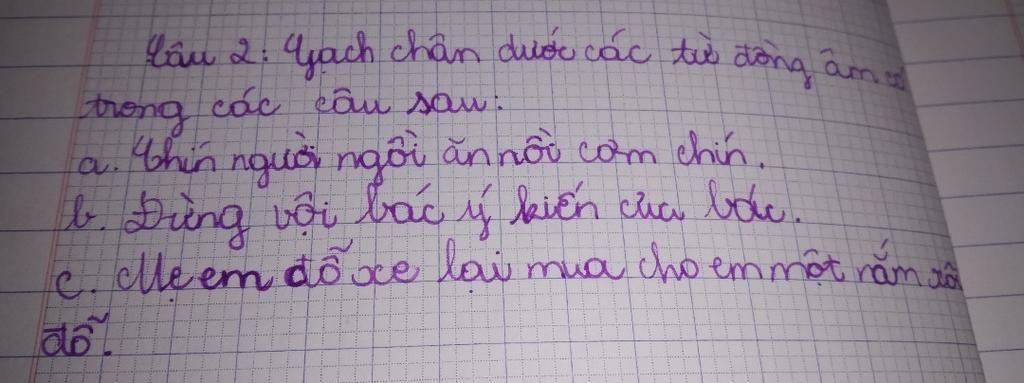 Câu 2: Gạch chân dước các từ đồng âm có
trong các câu sau:
a. Chín người ngồi ăn nồi cơm chín.
b. Đừng vội bác ý kiến của bác.
c. Mẹ em đỗ xe lại mua cho em một nắm xôi
đỗ.